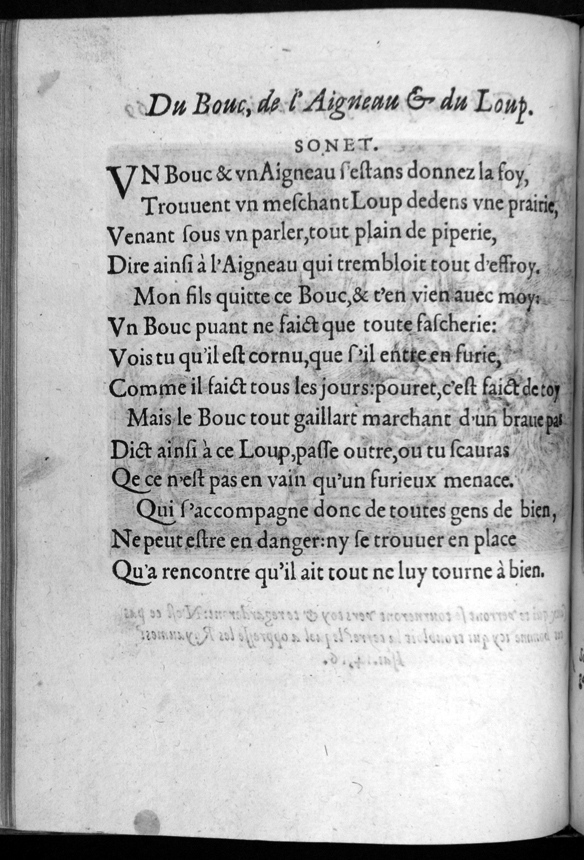 Du Bouc, de l'Aigneau & du Loup.
SONET.
VN Bouc & vn Aigneau ſ'eſtans donnez la foy,
Trouuent vn meſchant Loup dedens vne prairie,
Venant ſous vn parler, tout plain de piperie,
Dire ainſi à l'Aigneau qui trembloit tout d'effroy.
Mon fils quitte ce Bouc, & t'en vien auec moy:
Vn Bouc puant ne faict que toute faſcherie:
Vois tu qu'il eſt cornu, que ſ'il entre en furie,
Comme il faict tous les jours: pouret, c'eſt faict de toy
Mais le Bouc tout gaillart marchant d'un braue pas
Dict ainſi à ce Loup, paſſe outre, ou tu ſcauras
Qe ce n'eſt pas en vain qu'un furieux menace.
Qui ſ'accompagne donc de toutes gens de bien,
Ne peut eſtre en danger: ny ſe trouuer en place
Qu'a rencontre qu'il ait tout ne luy tourne à bien.